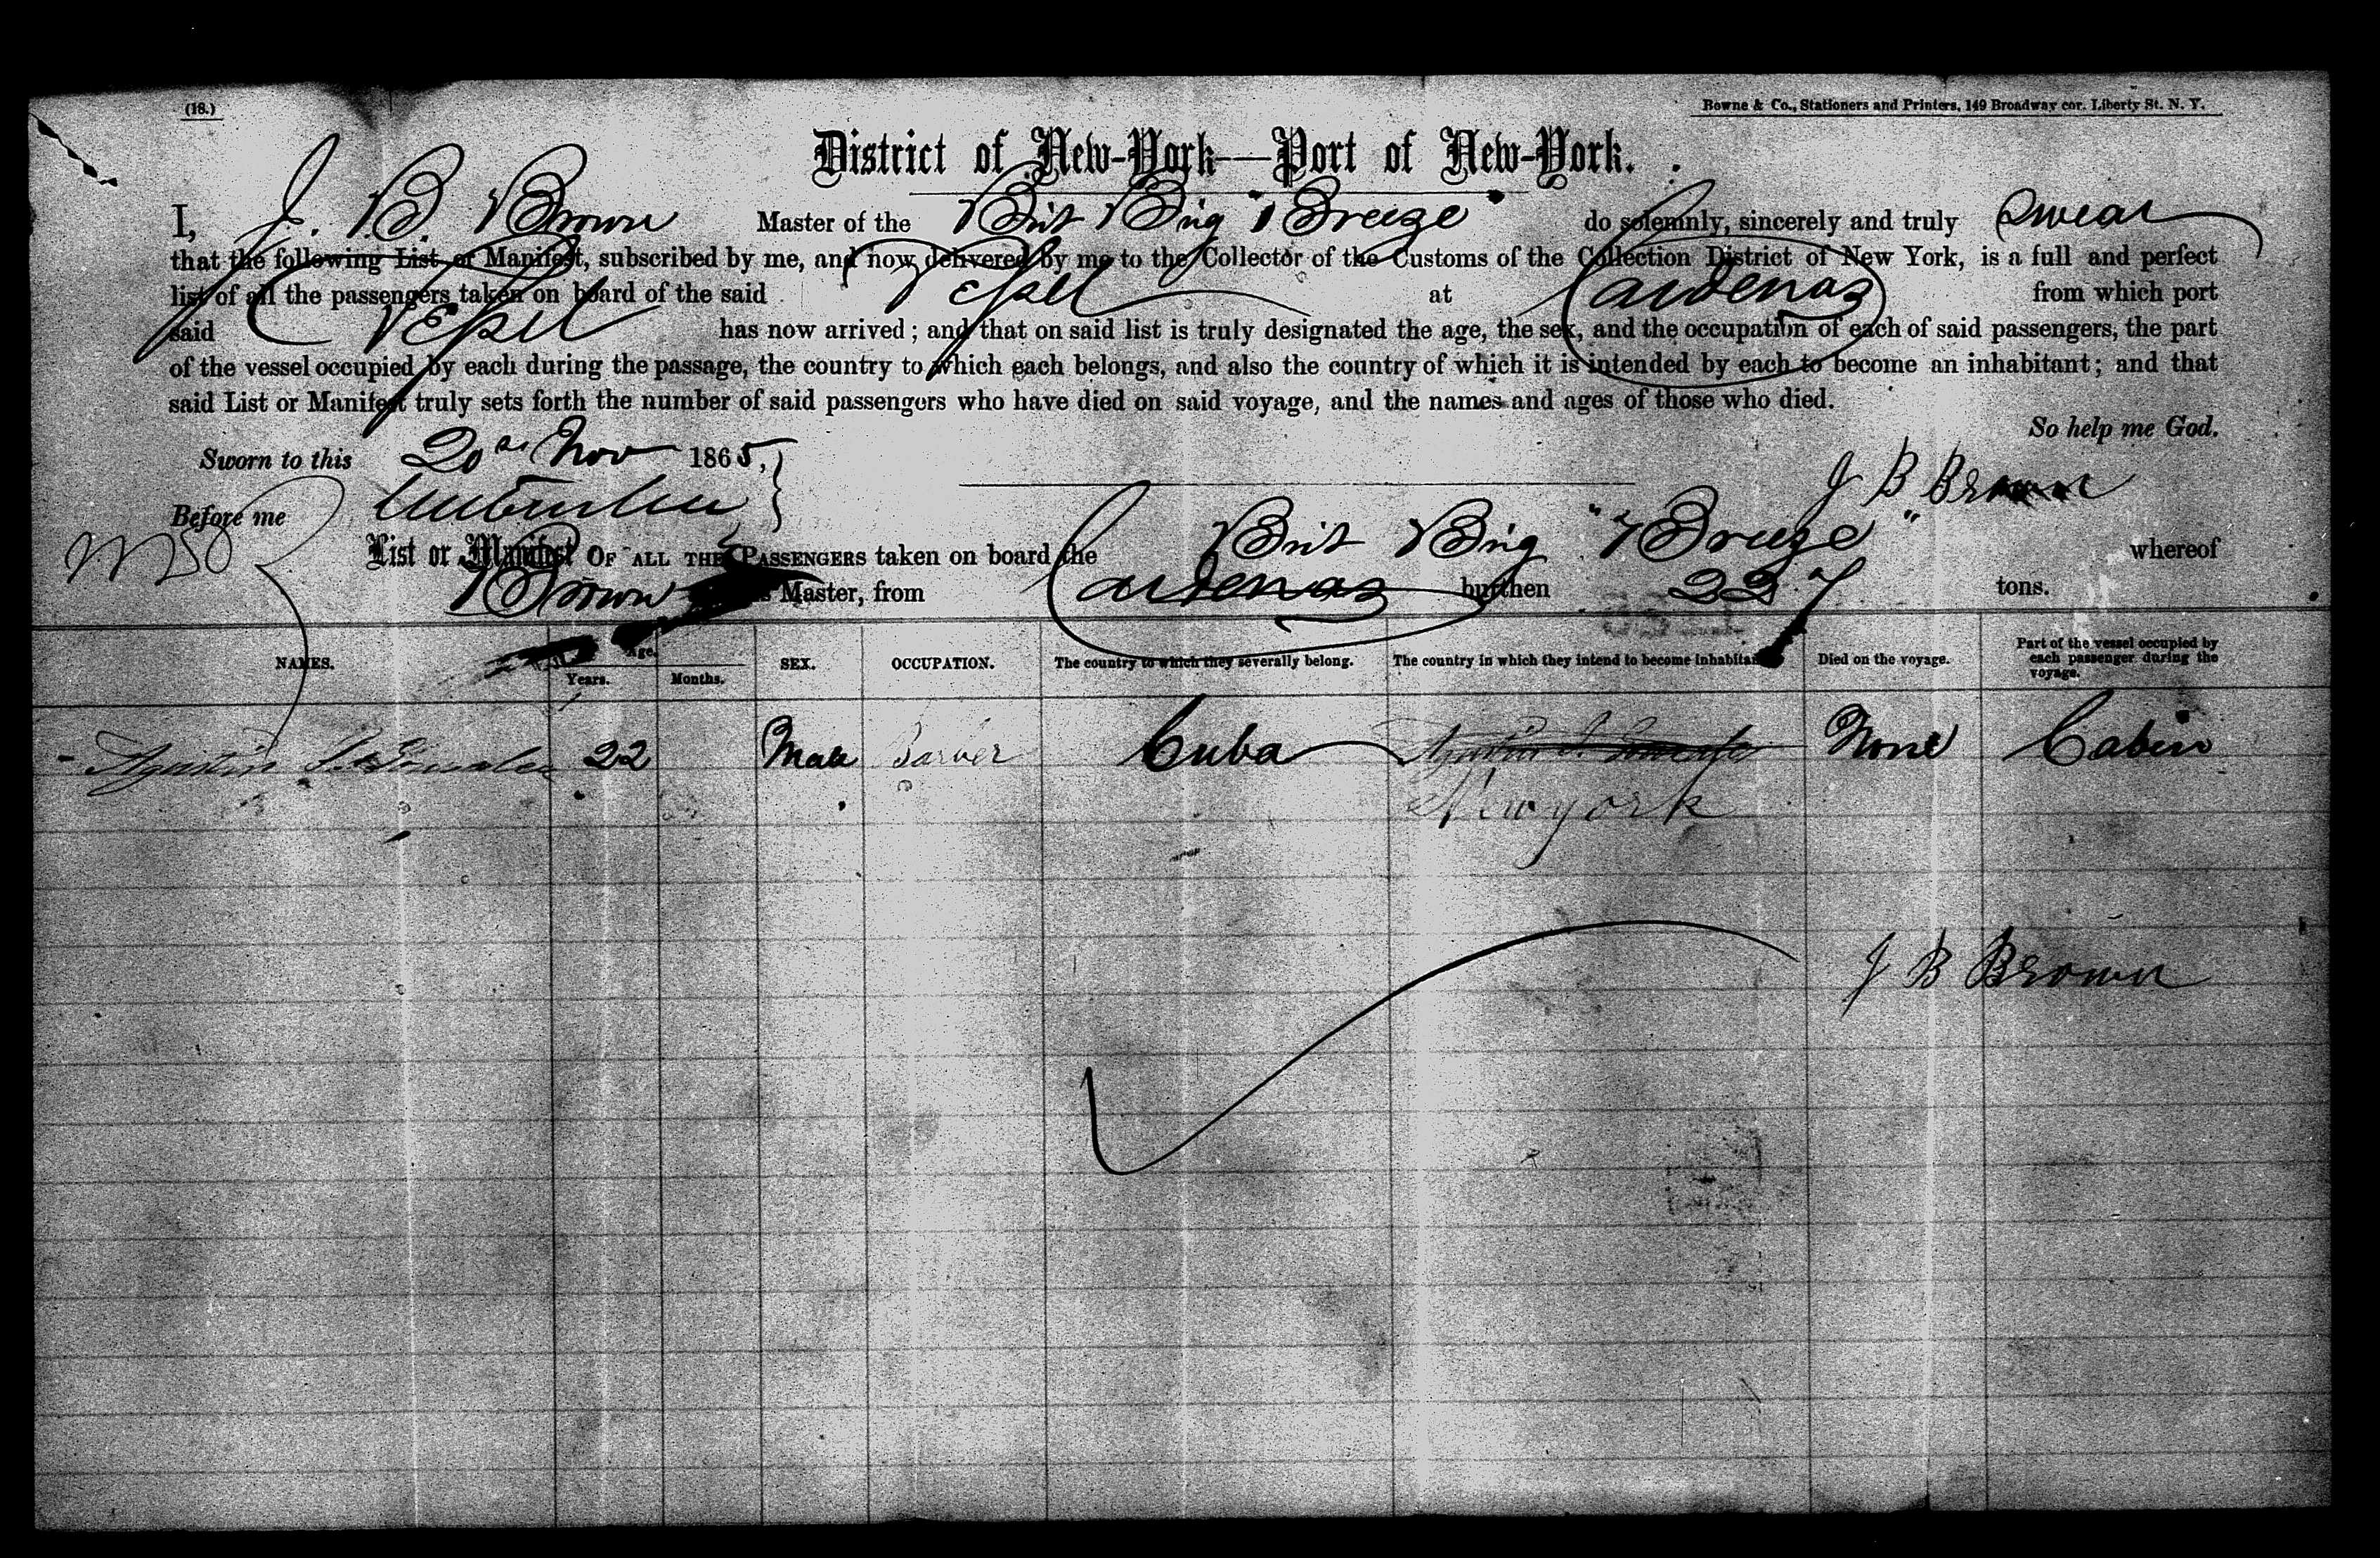 (18.)
Bowne & Co., Stationers and Printers, 149 Broadway cor. Liberty St. N. Y.
District of New-York—Port of New-York.
I, J. B. Brown Master of the Brit Brig "Breeze" do solemnly, sincerely and truly Swear
that the following List or Manifest, subscribed by me, and now delivered by me to the Collector of the Customs of the Collection District of New York, is a full and perfect
list of all the passengers taken on board of the said Vessel at Cardenas from which port
said Vessel has now arrived; and that on said list is truly designated the age, the sex, and the occupation of each of said passengers, the part
of the vessel occupied by each during the passage, the country to which each belongs, and also the country of which it is intended by each to become an inhabitant; and that
said List or Manifest truly sets forth the number of said passengers who have died on said voyage, and the names and ages of those who died.
So help me God.
Sworn to this 20th Nov 1865,
J B Brown
Before me
List or Manifest OF ALL THE PASSENGERS taken on board the Brit Brig "Breeze" whereof
Brown is Master, from Cardenas burthen 227 tons.
NAMES. Age. Years. Months. SEX. OCCUPATION. The country to which they severally belong. The country in which they intend to become inhabitants. Died on the voyage. Part of the vessel occupied by each passenger during the voyage.
Agustin Gonzalez 22 Male Barver Cuba None Cabin
New york
J B Brown